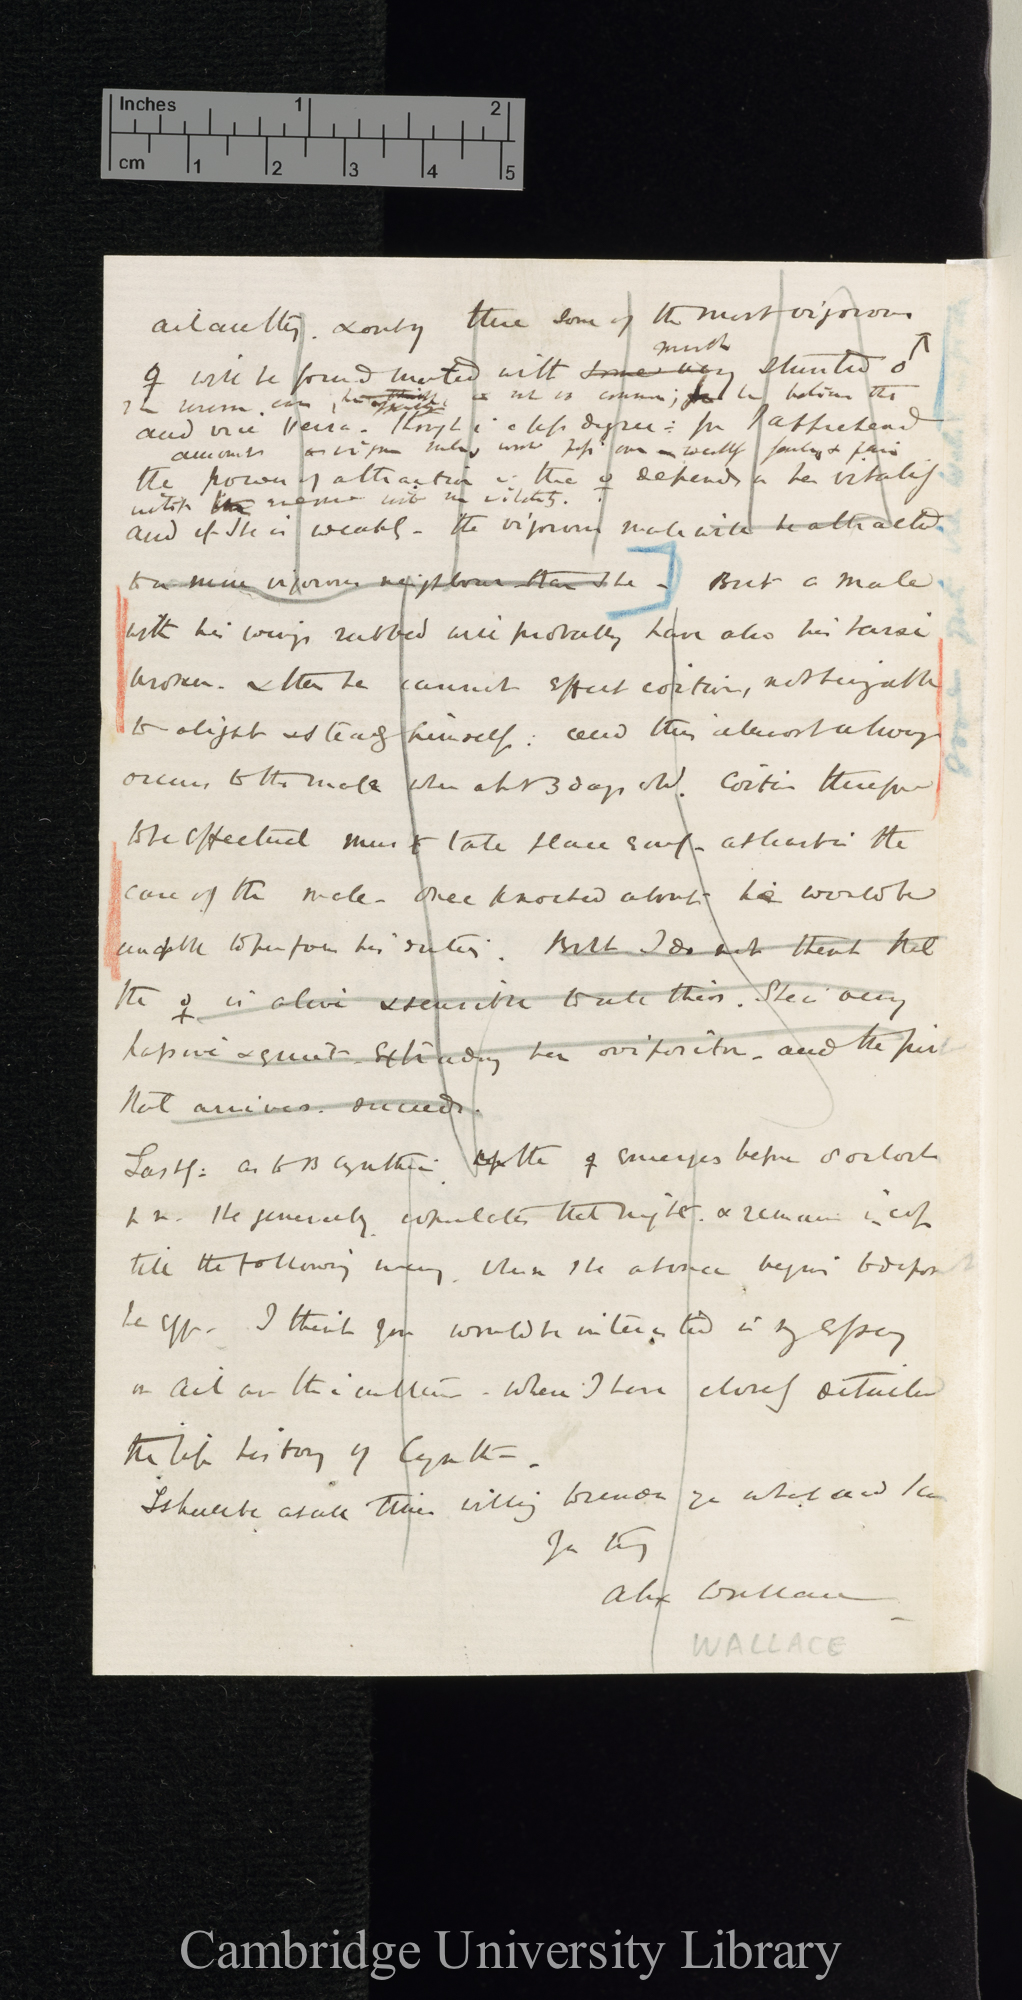 Inches 1 2
cm 1 2 3 4 5
there some of the most vigorous
much
♀ will be found mated with some very stunted ♂
and vice versa. though in a less degree: for I apprehend
the power of attraction in the ♀ depends on her vitality
and if she is weakly - the vigorous male will be attracted
to a more vigorous neighbour than she - But a male
with his wings rubbed will probably have also his tarsi
broken. & then he cannot effect coition, not being able
to alight & steady himself: and this almost always
occurs to the male when abt 3 days old. Coition therefore
to be effectual must take place early - at least in the
case of the male - once knocked about he would be
unable to perform his duties. But I do not think that
the ♀ is alive & sensible to all this. She is very
passive & quiet extruding her ovipositor - and the first
that arrives. succeeds.
Lastly: as to B Cynthia. If the ♀ emerges before 8 o'clock
p m. She generally copulates that night. & remains in cop
till the following evng. when she at once begins to deposit
her eggs. I think you would be interested in my Essay
on Ailanthiculture - where I have closely detailed
the life history of Cynthia.
I shall be at all times willing to render you what aid I can
Yrs truly
Alex Wallace
WALLACE
Cambridge University Library